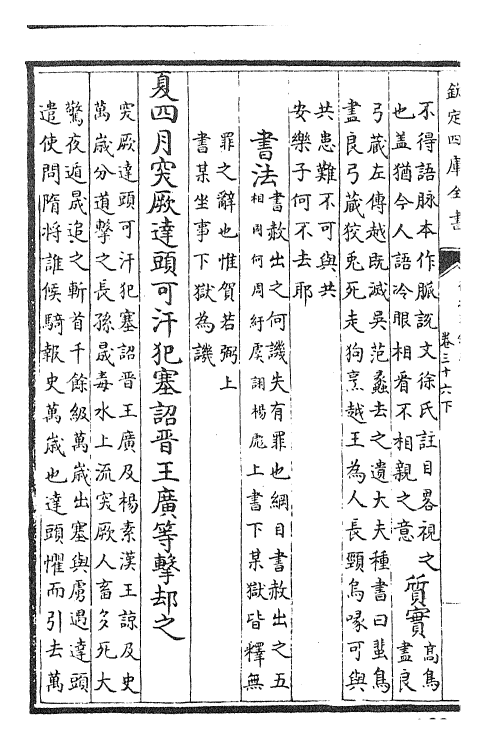 欽定四庫全書
卷三十六下
不得語脉本作脈説文徐氏註目畧視之
也盖猶今人語冷眼相看不相親之意
質實
高鳥
盡良
弓藏左傳越既滅吳范蠡去之遺大夫種書曰蜚鳥
盡良弓藏狡兎死走狗烹越王為人長頸烏喙可與
共患難不可與共
安樂子何不去耶
書法
書赦出之何譏失有罪也綱目書赦出之五
相周何周紆虞詡楊彪上書下某獄皆釋無
罪之辭也惟賀若弼上
書某坐事下獄為譏
夏四月突厥達頭可汗犯塞詔晉王廣等擊却之
突厥達頭可汗犯塞詔晉王廣及楊素漢王諒及史
萬歲分道擊之長孫晟毒水上流突厥人畜多死大
驚夜遁晟追之斬首千餘級萬歲出塞與虜遇達頭
遣使問隋將誰候騎報史萬歲也達頭懼而引去萬